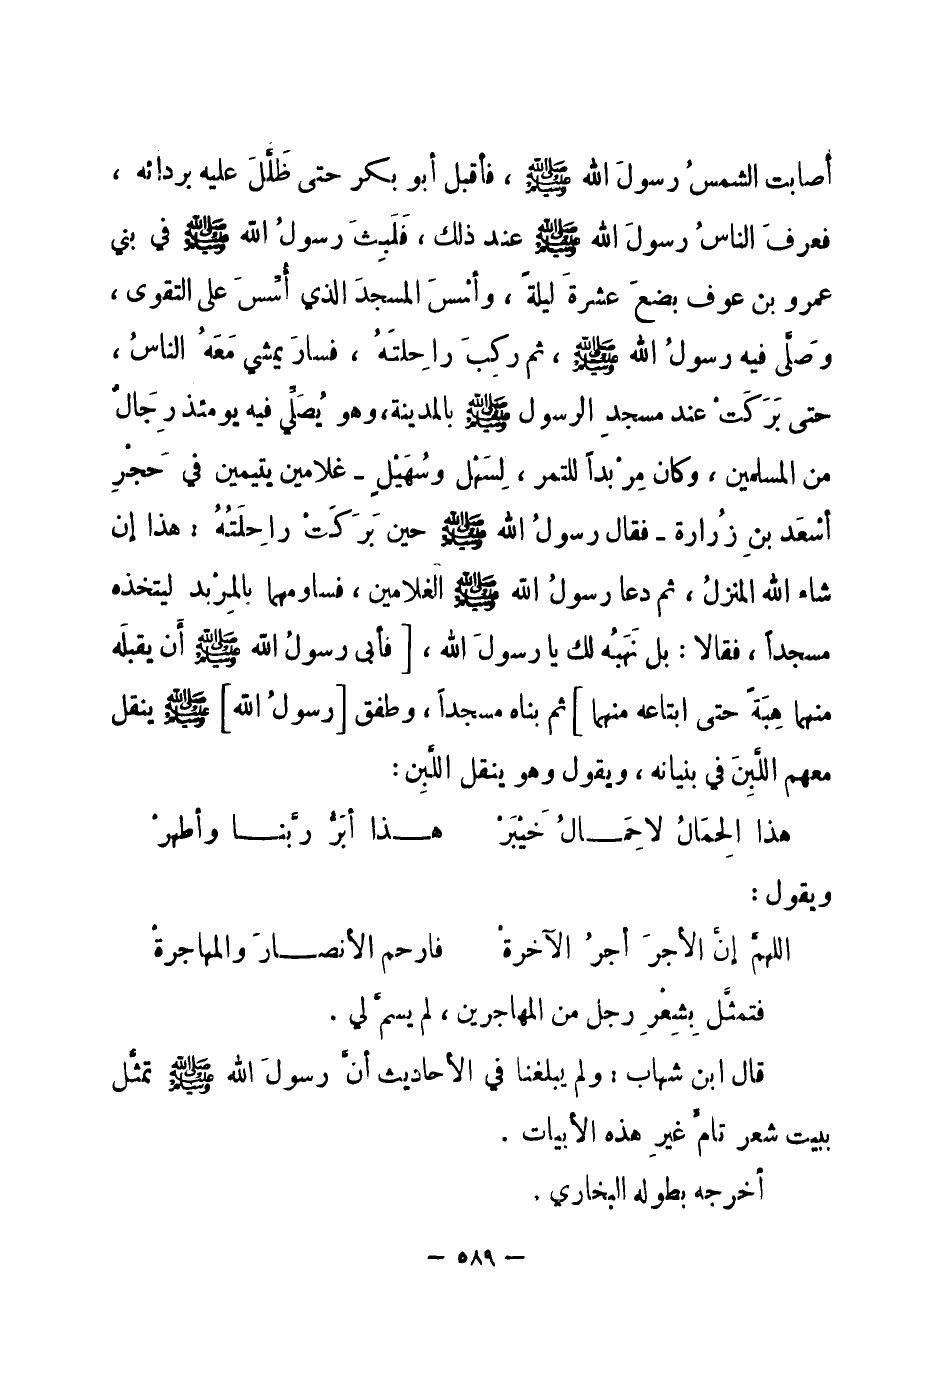 أصابت الشمسُ رسولَ الله ﷺ ، فأقبل أبو بكر حتى ظَلَّلَ عليه بردائه ،
فعرفَ الناسُ رسولَ الله ﷺ عند ذلك ، فَلَبِثَ رسولُ الله ﷺ في بني
عمرو بن عوف بضعَ عشرةَ ليلةً ، وأسسَ المسجدَ الذي أُسِّسَ على التقوى ،
وَصَلَّى فيه رسولُ الله ﷺ ، ثم ركِبَ راحِلتَهُ ، فسارَ يمشي مَعَهُ الناسُ ،
حتى بَرَكَتْ عند مسجدِ الرسول ﷺ بالمدينة، وهو يُصَلِّي فيه يومئذ رِجَالٌ
من المسلمين ، وكان مِرْبداً للتمر ، لِسَهْل وسُهَيْلٍ - غلامين يتيمين في حَجْرِ
أسْعَد بنِ زُرارة - فقال رسولُ الله ﷺ حين بَرَكَتْ راحِلَتُهُ : هذا إن
شاء الله المنزلُ ، ثم دعا رسولُ الله ﷺ الغلامين ، فساومهما بالمِرْبد ليتخذه
مسجداً ، فقالا : بل نَهَبُه لك يا رسولَ الله ، [ فأبى رسولُ الله ﷺ أن يقبلَه
منهما هِبَةً حتى ابتاعه منهما ] ثم بناه مسجداً ، وطفق [رسولُ الله] ﷺ ينقل
معهم اللَّبِنَ في بنيانه ، ويقول وهو ينقل اللَّبِن :
هذا الحِمَالُ لا حِمَالُ خَيْبَرْ هذا أبَرُّ ربَّنا وأطهرْ
ويقول :
اللهمَّ إنَّ الأجرَ أجرُ الآخرةْ فارحم الأنصارَ والمهاجرةْ
فتمثَّل بِشِعْرِ رجل من المهاجرين ، لم يسمَّ لي .
قال ابن شهاب : ولم يبلغنا في الأحاديث أنَّ رسولَ الله ﷺ تمثَّل
ببيت شعر تامٍّ غيرِ هذه الأبيات .
أخرجه بطوله البخاري .
– ٥٨٩ –